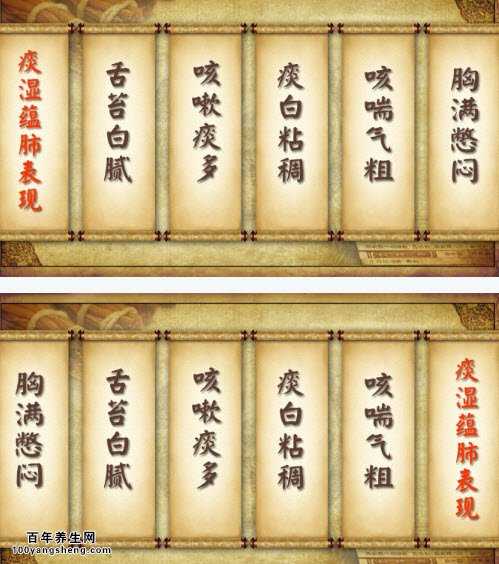 痰湿蕴肺表现
舌苔白腻
咳嗽痰多
痰白粘稠
咳喘气粗
胸满憋闷
痰湿蕴肺表现
咳喘气粗
痰白粘稠
咳嗽痰多
舌苔白腻
胸满憋闷
百年养生网
100yangsheng.com